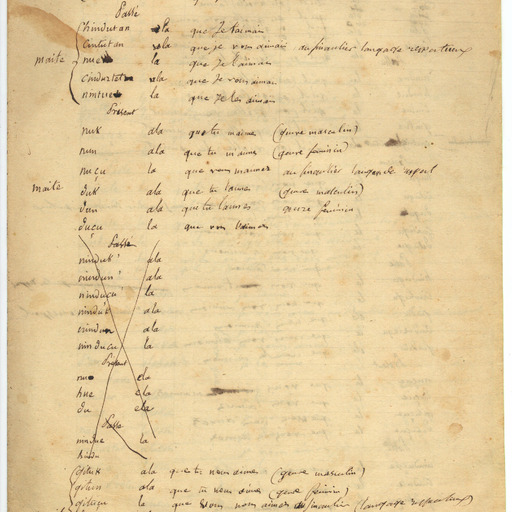 Passé
chindutan ela que Je t'aimais
cintutan ela que je vous aimais au singulier langage respectueux
maite nue la que Je l'aimais
cinduztetan ela que Je vous aimais
nintue la que Je les aimais
Présent
nuk ala que tu m'aimes (genre masculin)
nun ala que tu m'aimes (genre féminin)
nuçu la que vous m'aimez au singulier langage de respect
maite duk ala que tu l'aimes (genre masculin)
dun ala que tu l'aimes genre féminin
duçu la que vous l'aimez
Passé
ninduk ala
nindun ala
ninduçu la
ninduk ala
nindun ala
ninduçu la
Présent
nu ela
hue ela
du ela
Passé
la
gituk ala que tu nous aimes (genre masculin)
gitun ala que tu nous aimes (genre féminin)
gituçu la que vous nous aimez au singulier (langage respectueux)